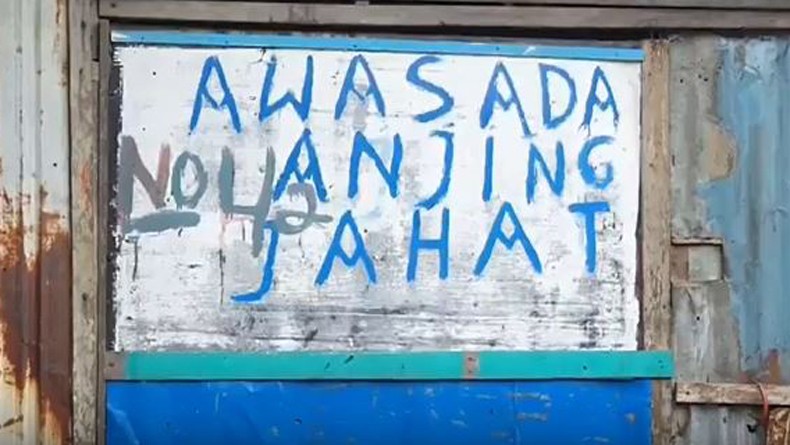 AWAS ADA
ANJING
JAHAT
No 42